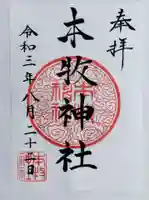 奉拝
本牧神社
令和三年八月二十五日